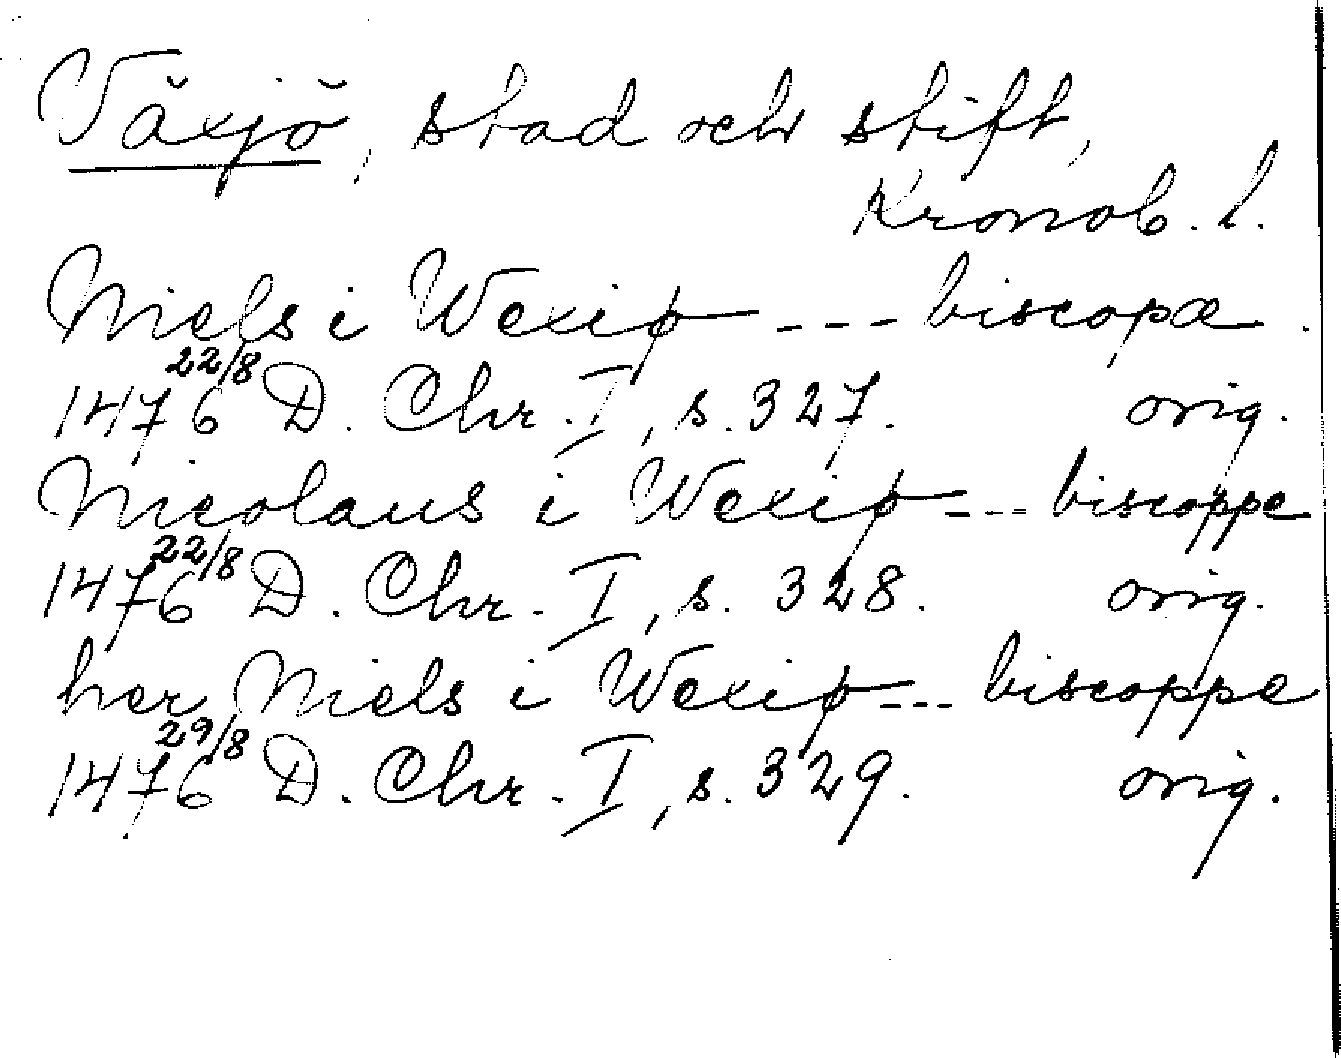 Växjö, stad och stift,
Kronob. l.
Niels i Wexiø --- biscopæ.
1476 22/8 D. Chr. I, s. 327. orig.
Nicolaus i Wexiø --- biscoppe
1476 22/8 D. Chr. I, s. 328. orig.
her Niels i Wexiø --- biscoppe
1476 29/8 D. Chr. I, s. 329. orig.